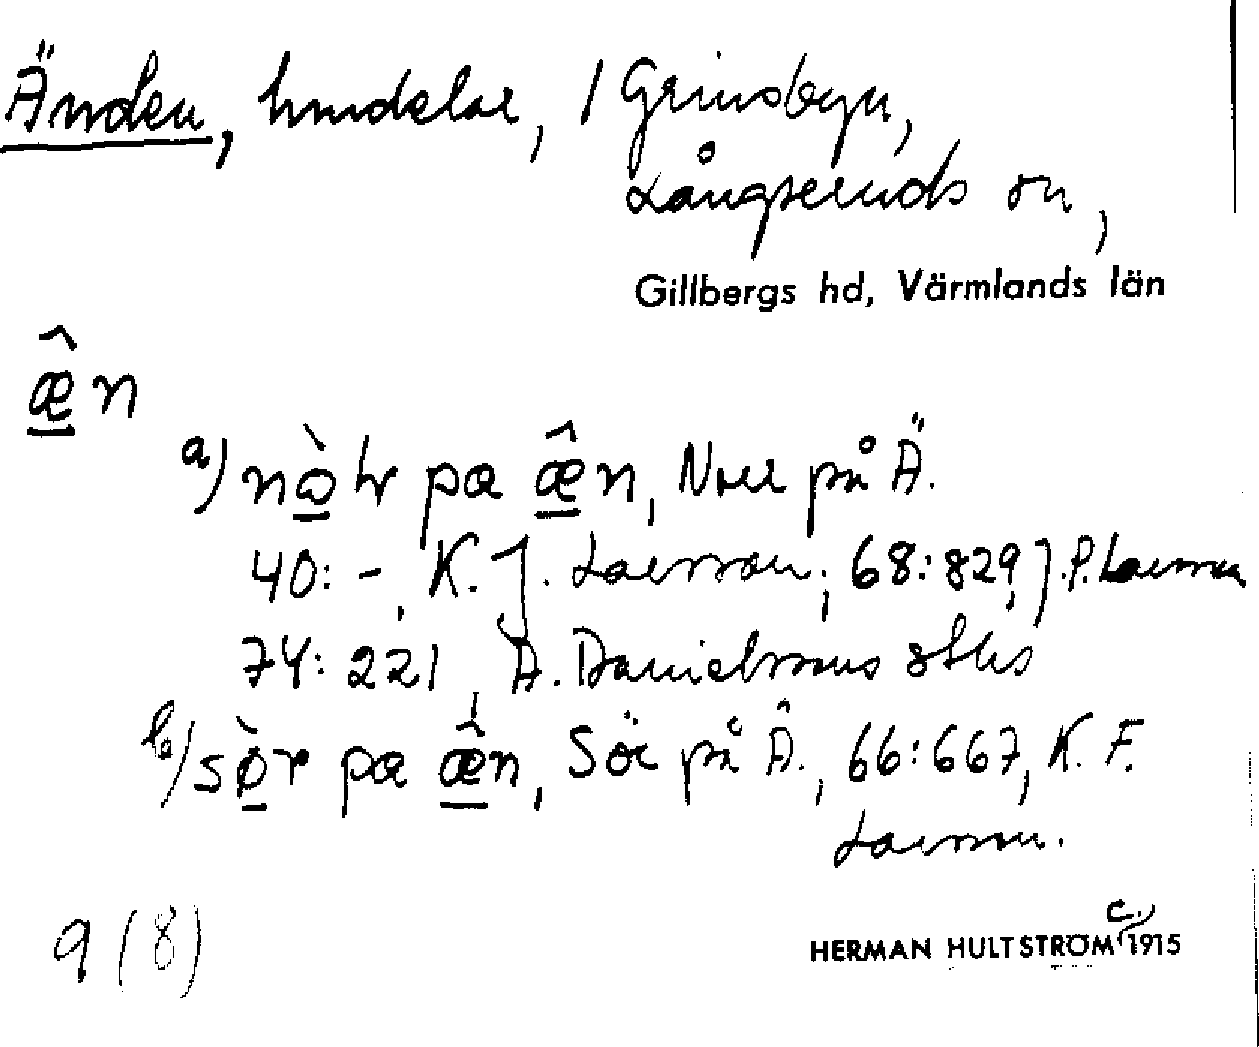 Änden, hmdelar, / Grinsbyn,
Långseruds sn,
Gillbergs hd, Värmlands län
æ̂n
a) nò̱r pa æ̂n, Norr på Ä.
40: -, K. J. Larsson; 68:829, J. P. Larsson
74: 221, A. Danielssons stbhs
b) sø̱̀r pa æ̂n, Sör på Ä., 66:667, K. F.
Larsson.
9 (8)
HERMAN HULTSTRÖM c., 1915